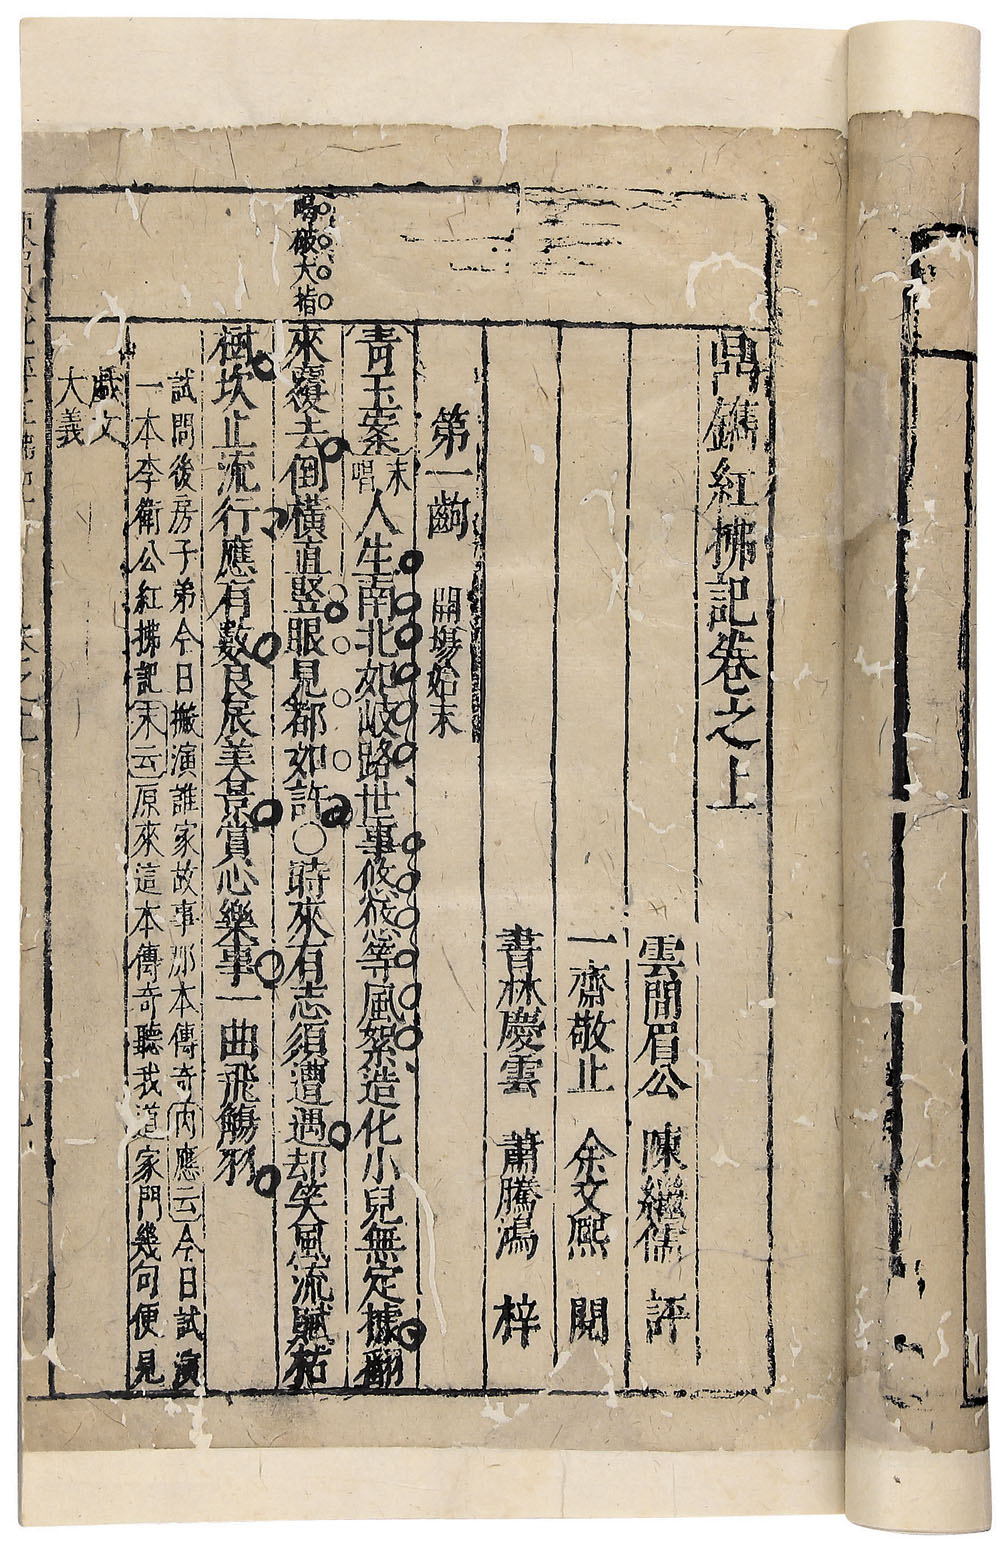 鼎鐫紅拂記卷之上
雲間眉公 陳繼儒 評
一齋敬止 余文熙 閱
書林慶雲 蕭騰鴻 梓
第一齣 開塲始末
青玉案 末唱 人生南北如岐路世事悠悠等風絮造化小兒無定據翻
來覆去倒橫直竪眼見都如許○時來有志須遭遇却笑風流賦枯
樹坎止流行應有數良辰美景賞心樂事一曲飛觴羽
試問後房子弟今日搬演誰家故事那本傳奇內應云今日試演
一本李衛公紅拂記末云原來這本傳奇聽我道家門幾句便見
戲文
大義
喝破大指